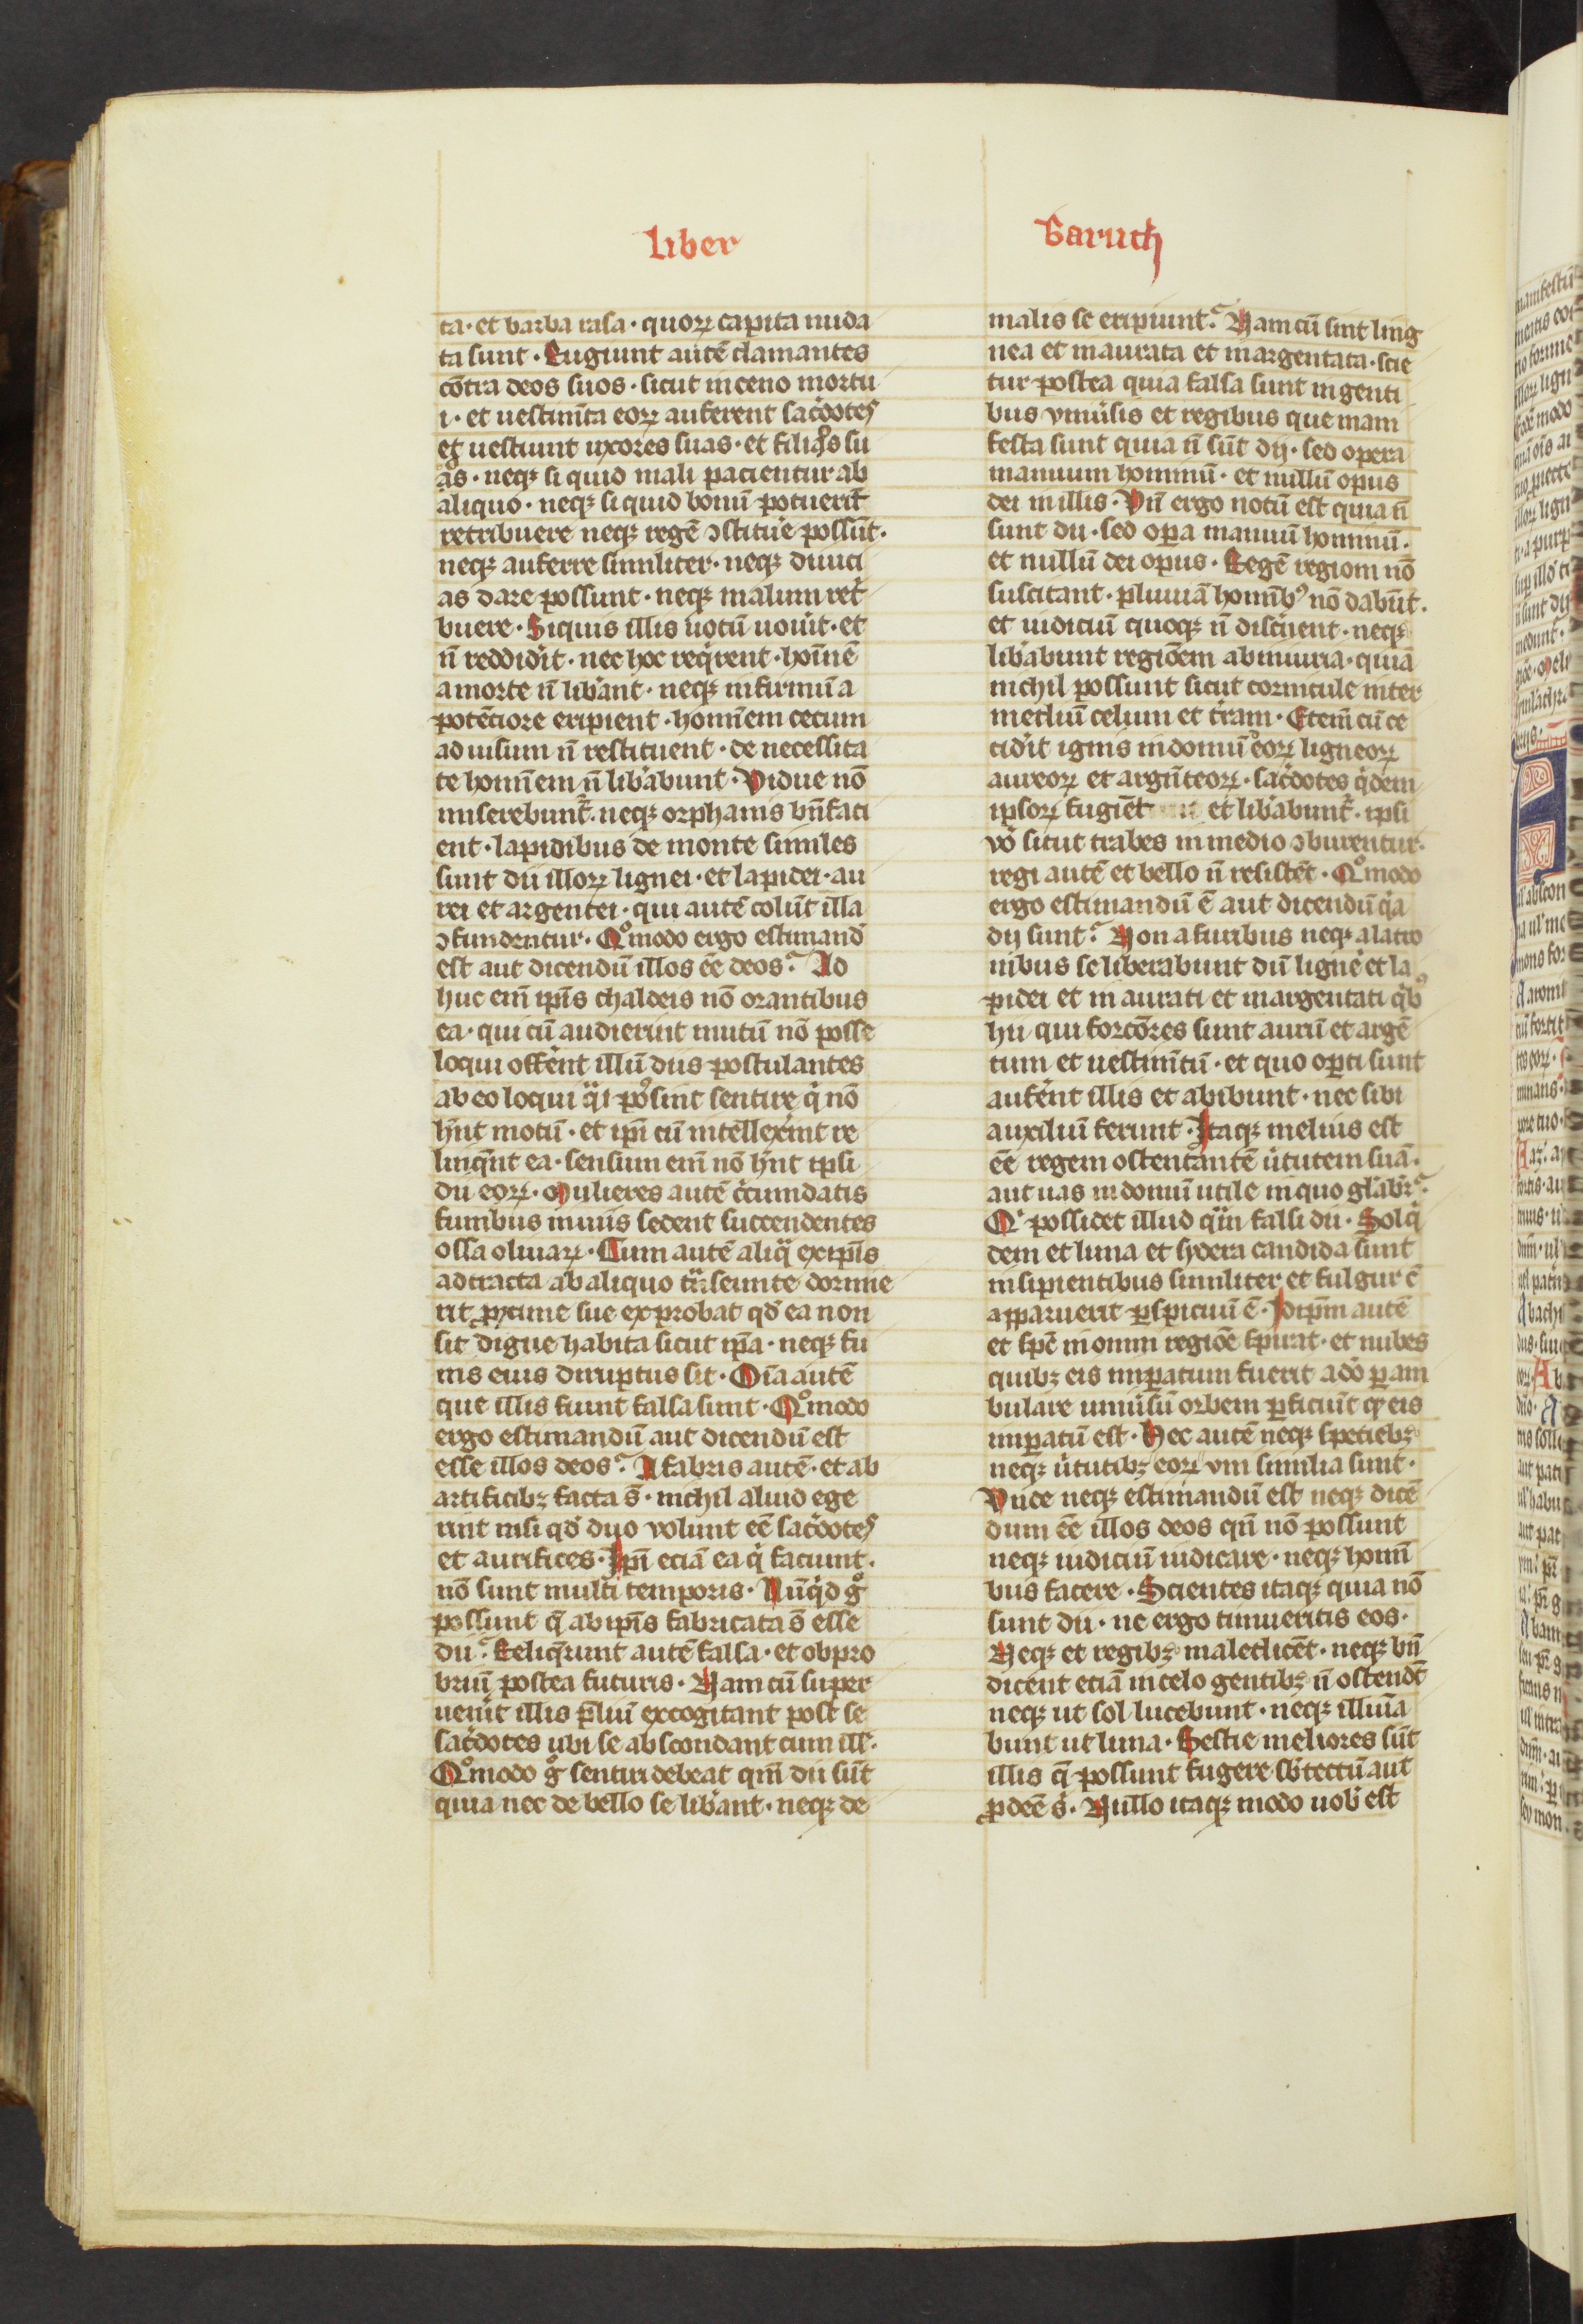 liber
Baruch
ta · et barba rasa · quoꝝ capita nuda
ta sunt · Rugiunt autē clamantes
cōtra deos suos · sicut in ceno mortu
i · et uestimēta eoꝝ auferent sac̓dotes
et uestiunt uxores suas · et filios su
os · neqꝫ si quid mali pacientur ab
aliquo · neqꝫ si quid bonū potuerīt
retribuere neqꝫ regē ꝯstitue̓ possūt ·
neqꝫ auferre similiter · neqꝫ diuici
as dare possunt · neqꝫ malum ret̓
buere · Si quis illis uotū uou̓it · et
n̄ reddid̓it · nec hoc req̓rent · hoīnē
a morte n̄ lib̓ant · neqꝫ infirmū a
potēciore eripient · hominem cecum
ad uisum n̄ restituent · de necessita
te hominem n̄ lib̓abunt · Vidue nō
miserebunt᷑ · neqꝫ orphanis bn̄faci
ent · lapidibus de monte similes
sunt dii illoꝝ lignei · et lapidei · au
rei et argentei · qui autē colūt illa
ꝯfundentur · Qͦmodo ergo estimand̓
est aut dicendū illos eē deos? Ad
huc em̄ ip̄is chaldeis nō orantibus
ea · qui cū audierint mutū nō posse
loqui offe̓nt illū dus postulantes
ab eo loqui qᷓi possint sentire q̓ nō
hn̄t motū · et ip̄i cū intellex̓int re
linquēt ea · sensum em̄ nō hn̄t ipsi
dii eoꝝ · Mulieres autē cc̓umdatis
funibus in uiis sedent succendentes
ossa oliuaꝝ · Cum autē aliqᷓ ex ip̄is
adtracta ab aliquo tᷓnseunte dormie
rit ꝓxime sue exprobat qd̓ ea non
sit digne habita sicut ip̄a · neqꝫ fu
nis eius diruptus sit · Oīa autē
que illis fiunt falsa sunt · Qͦmodo
ergo estimandū aut dicendū est
esse illos deos? A fabris autē · et ab
artificibꝫ facta s̄ · nichil aliud ege
rint nisi qd̓ duo volunt eē sac̓dotes
et aurifices · Ip̄i eciā ea q̓ faciunt ·
nō sunt multi temporis · Nūq̓d gͦ
possunt q̄ ab ip̄is fabricata s̄ esse
dii? Reliq̓runt autē falsa · et obpro
briū postea futuris · Nam cū super
uen̓it illis p̄liū excogitant post se
sac̓dotes ubi se abscondant cum ill̓ ·
Qͦmodo gͦ sentiri debeat qm̄ dii sūt
quia nec de bello se lib̓ant · neqꝫ de
malis se eripiunt? Nam cū sint ling
nea et inaurata et inargentata · scie
tur postea quia falsa sunt in genti
bus vniu̓sis et regibus que mani
festa sunt quia n̄ sūt dij · sed opera
manuum hominū · et nullū opus
dei in illis · Vn̄ ergo notū est quia n̄
sunt dii · sed opa manuū hominū ·
et nullū dei opus · Regē regioni nō
suscitant · pluuiā hominibꝰ nō dabūt ·
et iudiciū quoqꝫ n̄ disc̓nent · neqꝫ
lib̓abunt regiōem ab iniuria · quia
nichil possunt sicut cornicule inter
mediū celum et t̓ram · Etem̄ cū ce
cid̓it ignis in domū eoꝝ ligneoꝝ
aureoꝝ et argēteoꝝ · sac̓dotes q̓dem
ipsoꝝ fugiēt et lib̓abunt᷑ · ipsi
vo̓ sicut trabes in medio ꝯburentur ·
regi autē et bello n̄ resistēt · Qͦmodo
ergo estimandū ē aut dicendū qᷓa
dij sunt? Non a furibus neqꝫ a latro
nibus se liberabunt dii lignei et la
pidei et in aurati et inargentati q̓bꝰ
hii qui forcōres sunt aurū et argē
tum et uestimētū · et quo opti sunt
aufe̓nt illis et abibunt · nec sibi
auxiliū ferunt · Itaqꝫ melius est
eē regem ostentantē u̓tutem suā ·
aut uas in domū utile in quo gl̓abit᷑ ·
Qͥ possidet illud qᷓm falsi dii · Sol q̓
dem et luna et sydera candida sunt
insipientibus similiter et fulgur c̄
apparuerit ꝑspicuū ē · Idip̄m autē
et sp̄c in omni regiōe spirat · et nubes
quibꝫ eis impatum fuerit a dō ꝑam
bulare uniu̓sū orbem ꝑficiūt qd̓ eis
impatū est · Hec autē neqꝫ speciebꝫ
neqꝫ u̓tutibꝫ eoꝝ vni similia sunt ·
Vnde neqꝫ estimandū est neqꝫ dicē
dum eē illos deos qn̄ nō possunt
neqꝫ iudiciū iudicare · neqꝫ homī
bus facere · Scientes itaqꝫ quia nō
sunt dii · ne ergo timueritis eos ·
Neqꝫ et regibꝫ maledicēt · neqꝫ bn̄
dicent eciā in celo gentibꝫ n̄ ostendēt
neqꝫ ut sol lucebunt · neqꝫ illuīa
bunt ut luna · Bestie meliores sūt
illis q̄ possunt fugere sb̓ tectū aut
ꝓdeē s̓ · Nullo itaqꝫ modo uob̓ est